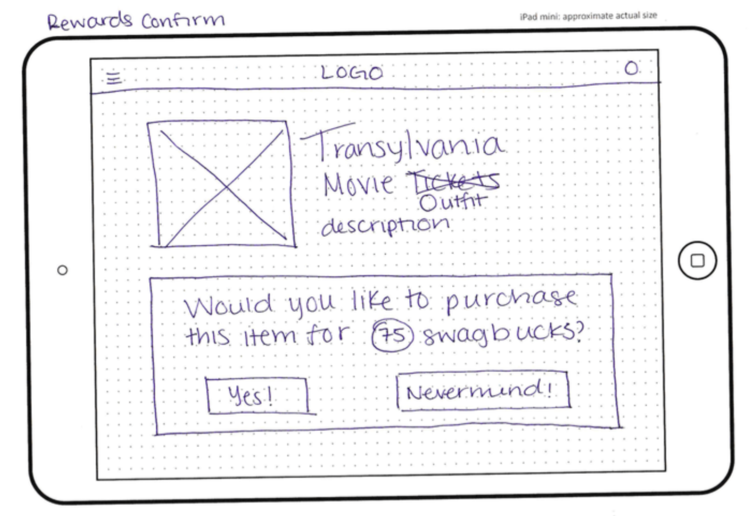 Rewards Confirm
iPad mini: approximate actual size
LOGO
Transylvania
Movie Tickets
Outfit
description
Would you like to purchase
this item for 75 swagbucks?
Yes!
Nevermind!